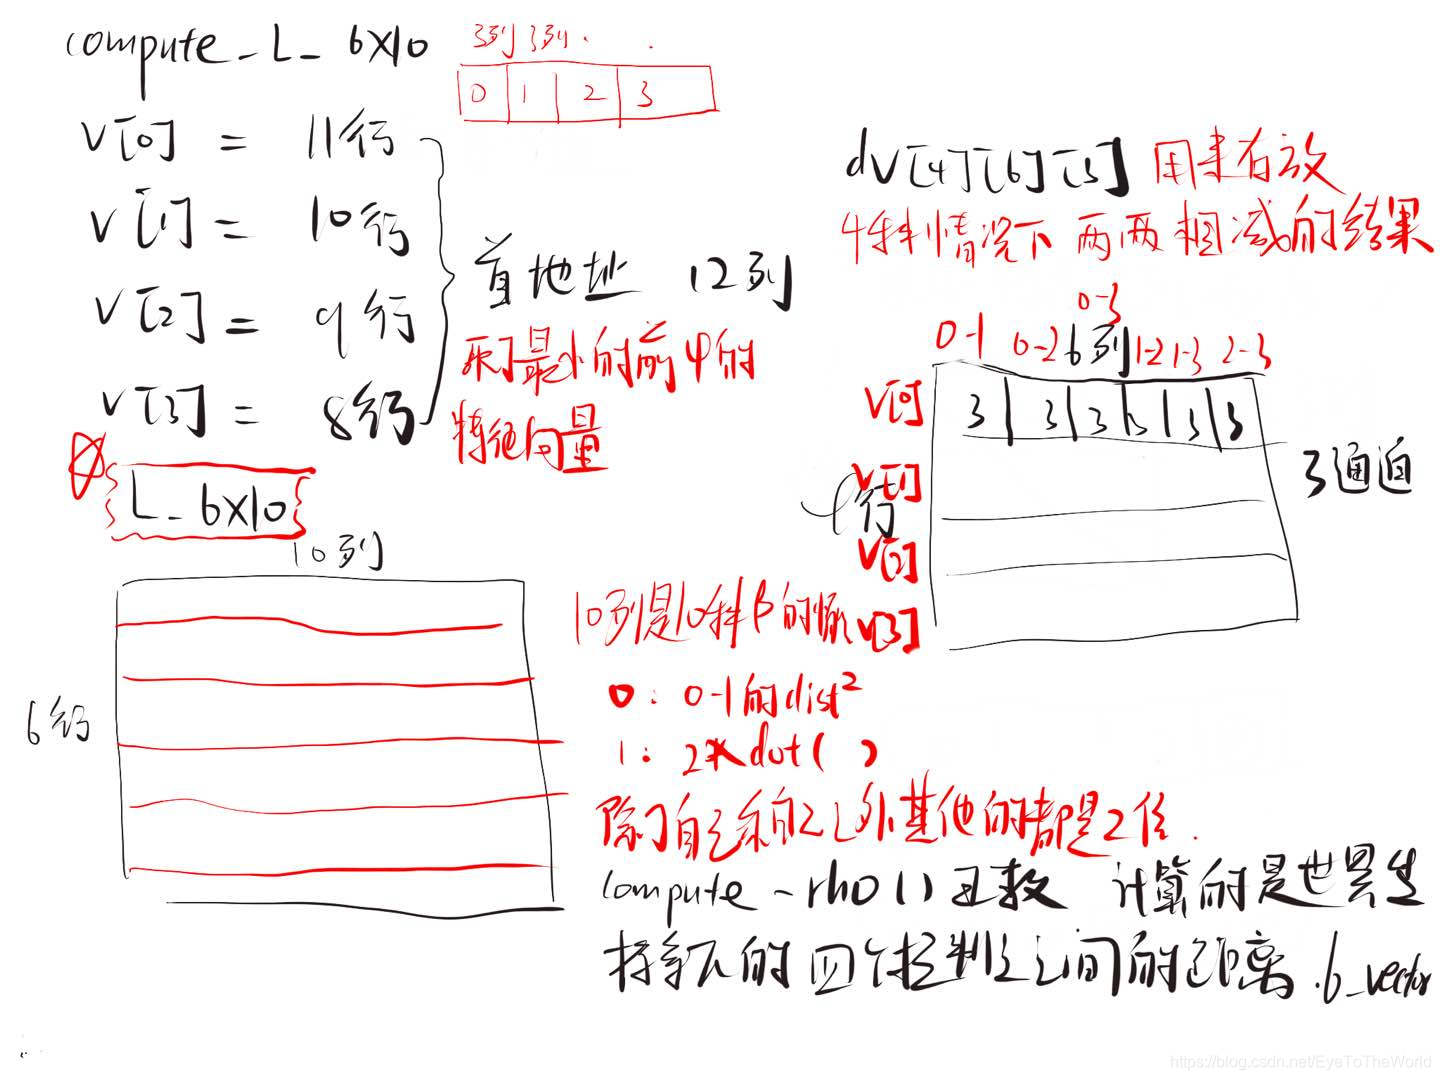 compute_L_6X10
3列 3列 . .
0 1 2 3
V[0] = 11行
V[1] = 10行
V[2] = 9行
V[3] = 8行
首地址 12列
最小的前4的
特征向量
dV[4][6][3] 用来存放
4种情况下 两两相减的结果
0-3
0-1 0-2 6列 1-2 1-3 2-3
V[0] 3 3 3 3 3 3
V[1]
4行
V[2]
V[3]
3通道
L_6X10
10列
6行
10列是10种β的
0: 0-1的dist²
1: 2*dot( )
除了自己和自己以外其他的都是2倍.
compute_rho()函数 计算的是世界坐
标系下的四个控制点之间的距离.6_vector
https://blog.csdn.net/EyeToTheWorld